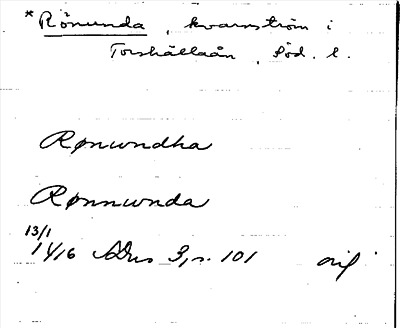 * Rönunda, kvarnström i
Torshällaån, Söd. l.
Rønundha
Rønnunda
13/1
1416 SDns 3, s. 101 orig